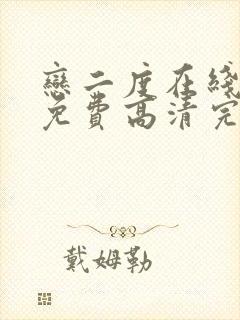 戀二度在綫
免費高清完
戴姆勒